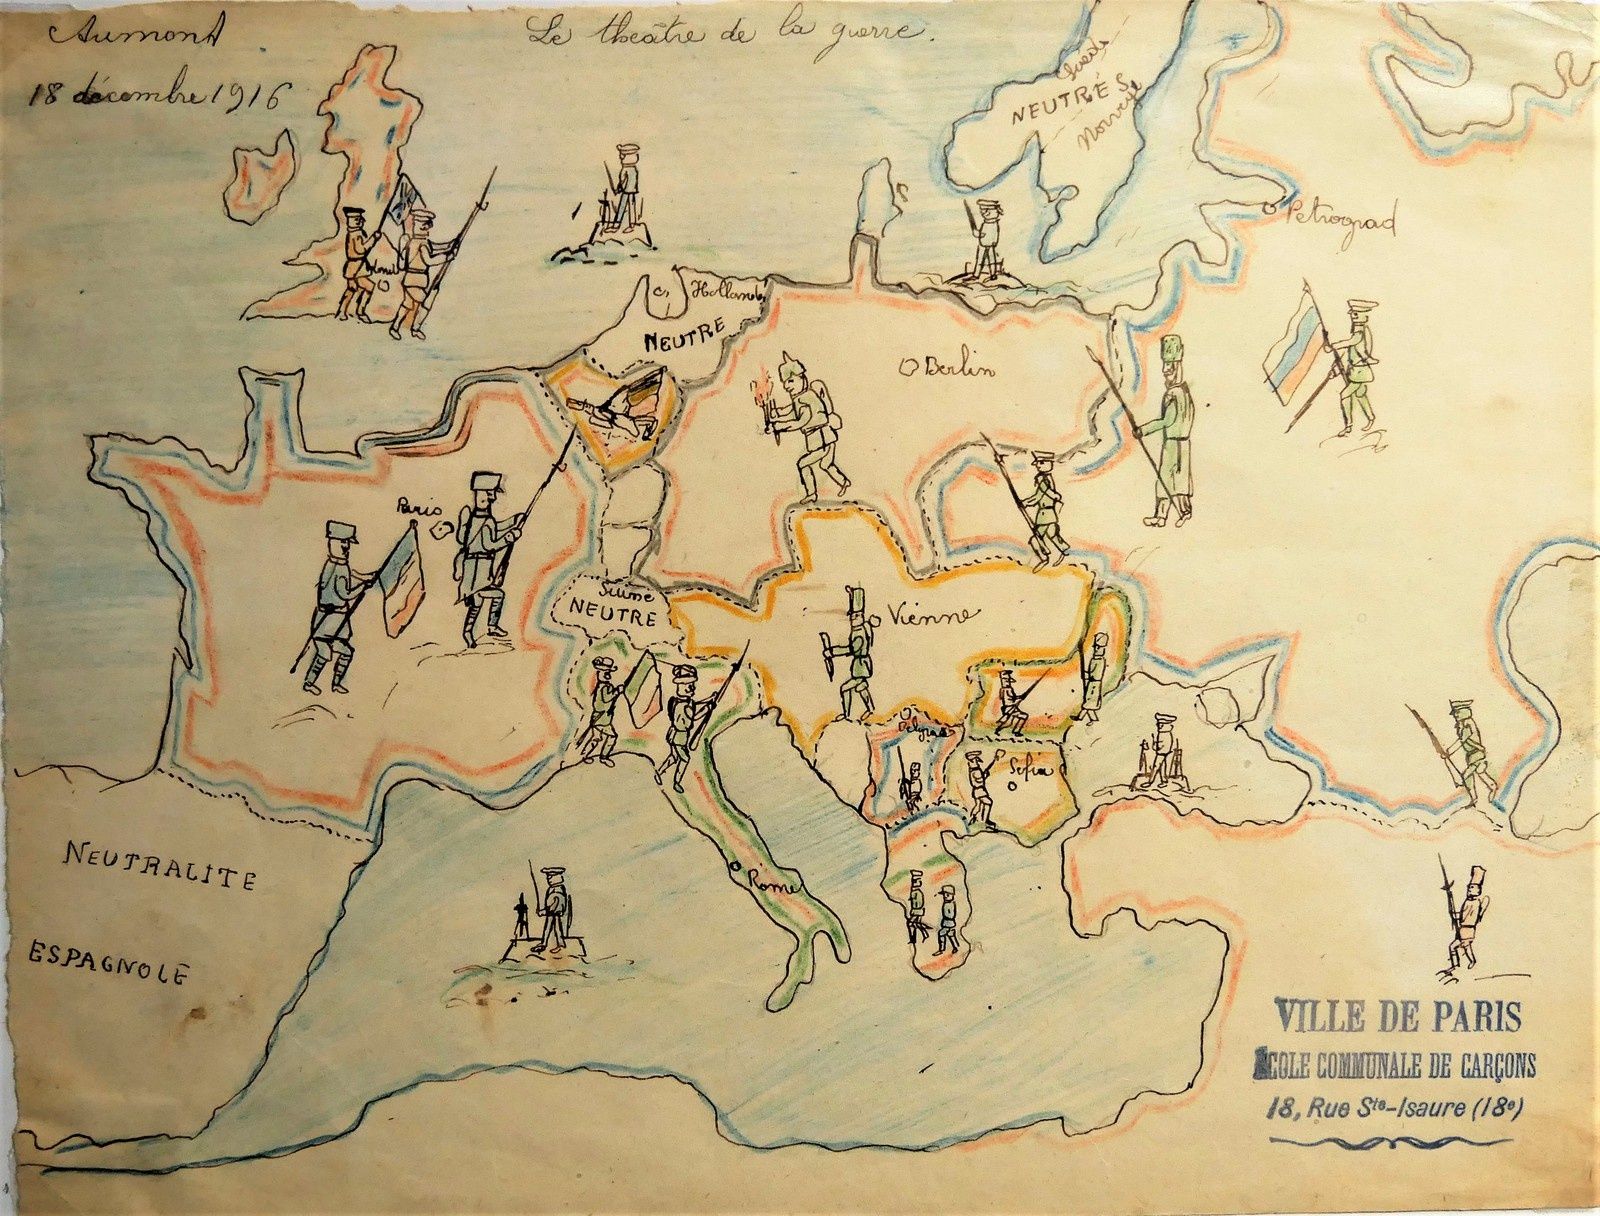 Aumont
Le theâtre de la guerre.
18 décembre 1916
Suède
NEUTRE
Norvège
Petrograd
Hollande
NEUTRE
Berlin
Paris
Suisse
NEUTRE
Vienne
Belgrade
Sofia
NEUTRALITE
ESPAGNOLE
Rome
VILLE DE PARIS
ÉCOLE COMMUNALE DE GARÇONS
18, Rue Ste-Isaure (18e)